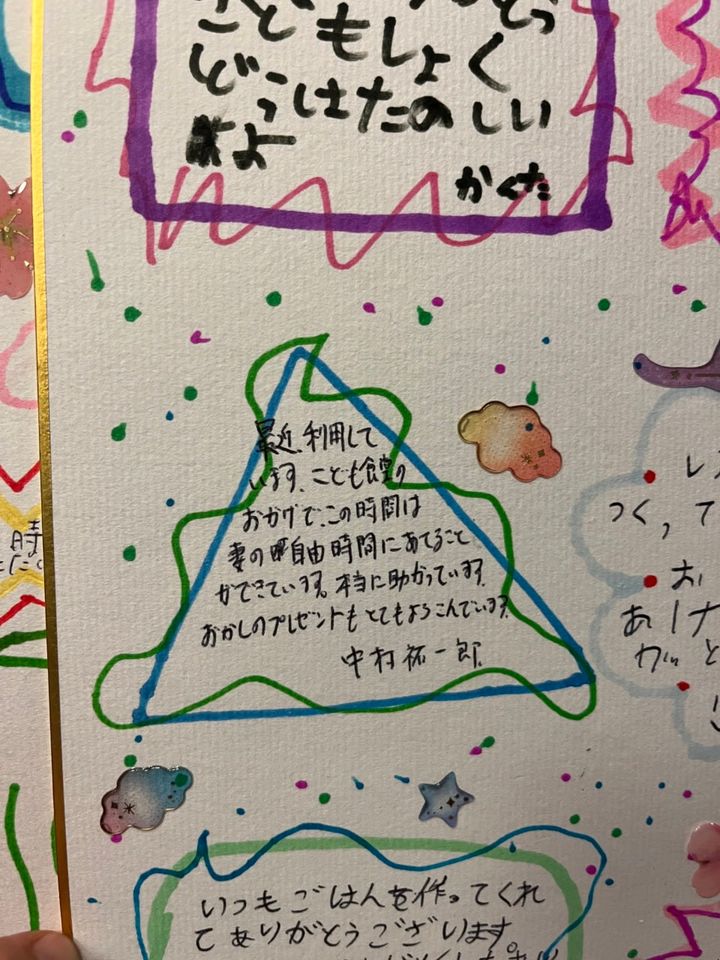 こどもしょく
どうはたのしい
よ
かくた
最近、利用して
います、こども食堂の
おかげで、この時間は
妻の自由時間にあてること
ができています。本当に助かっています。
おかしのプレゼントもとてもよろこんでいます。
中村祐一郎
時
つくって
お
あげ
が
いつもごはんを作ってくれ
てありがとうございます